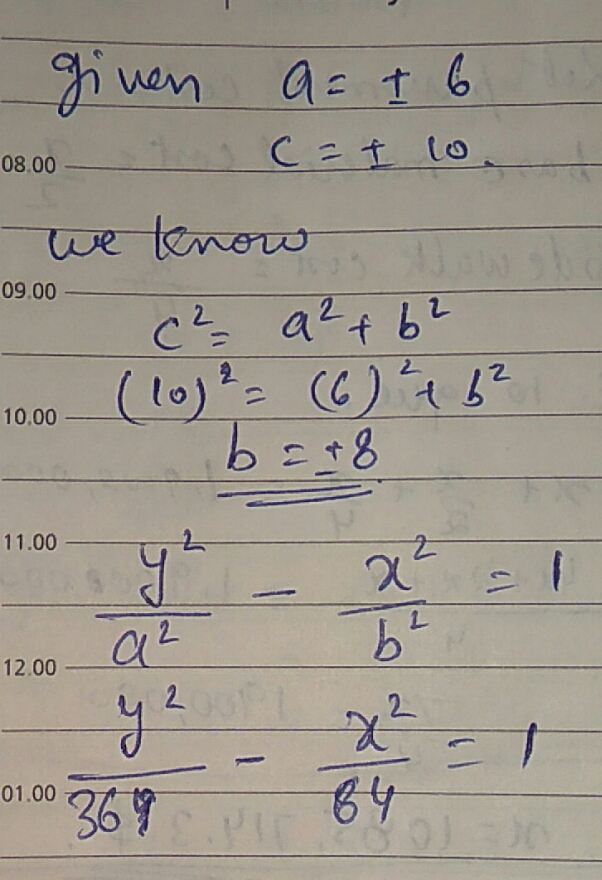 given a = ± 6
c = ± 10.
08.00
we know
09.00
c² = a² + b²
(10)² = (6)² + b²
10.00
b = ±8
11.00
y²/a² - x²/b² = 1
12.00
y²/36 - x²/64 = 1
01.00